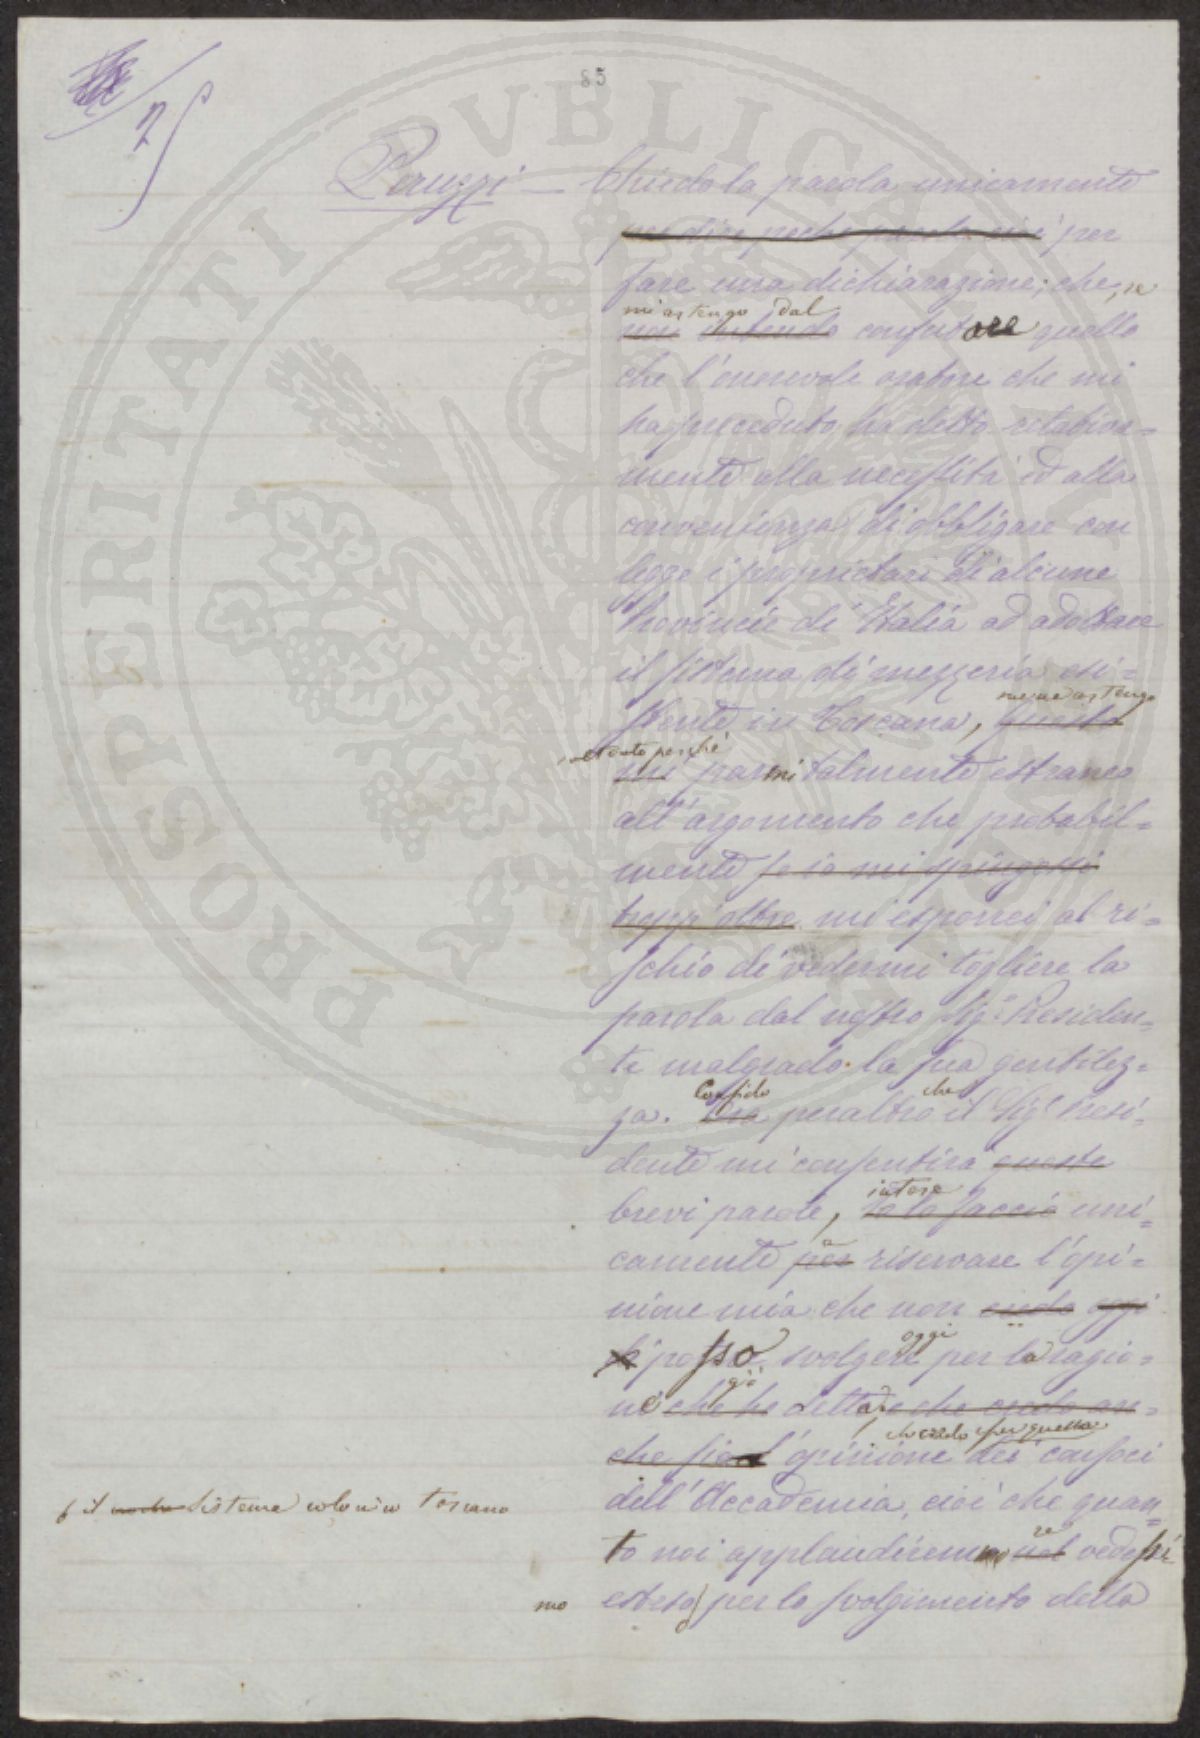 85
7
Peruzzi — Chiedo la parola unicamente
per dire poche parole cioè per
fare una dichiarazione; che, se
mi astengo dal
non intendo confutare quello
che l'onorevole oratore che mi
ha preceduto ha detto relativa=
mente alla necessità ed alla
convenienza di obbligare con
legge i proprietari di alcune
Provincie di Italia ad adottare
il sistema di mezzeria esi=
me ne astengo
stente in Toscana, questo
soltanto perchè
mi parmi talmente estraneo
all'argomento che probabil=
mente se io mi spingessi
tropp'oltre mi esporrei al ri=
schio di vedermi togliere la
parola dal nostro Sigr Presiden=
te malgrado la sua gentilez=
Confido che
za. Ma peraltro il Sigr Presi=
dente mi consentirà queste
intese
brevi parole, io lo faccio uni=
a
camente per riservare l'opi=
nione mia che non credo oggi
oggi
posso svolgere per la ragio=
già
ne che ho detta e che credo an=
che credo sia quella
che sia l'opinione dei consoci
dell'Accademia, cioè che quan=
f il nostro sistema colonico toscano
se
to noi applaudiremmo nel vedessi
mo esteso per lo svolgimento della
PROSPERITATI PVBLICAE